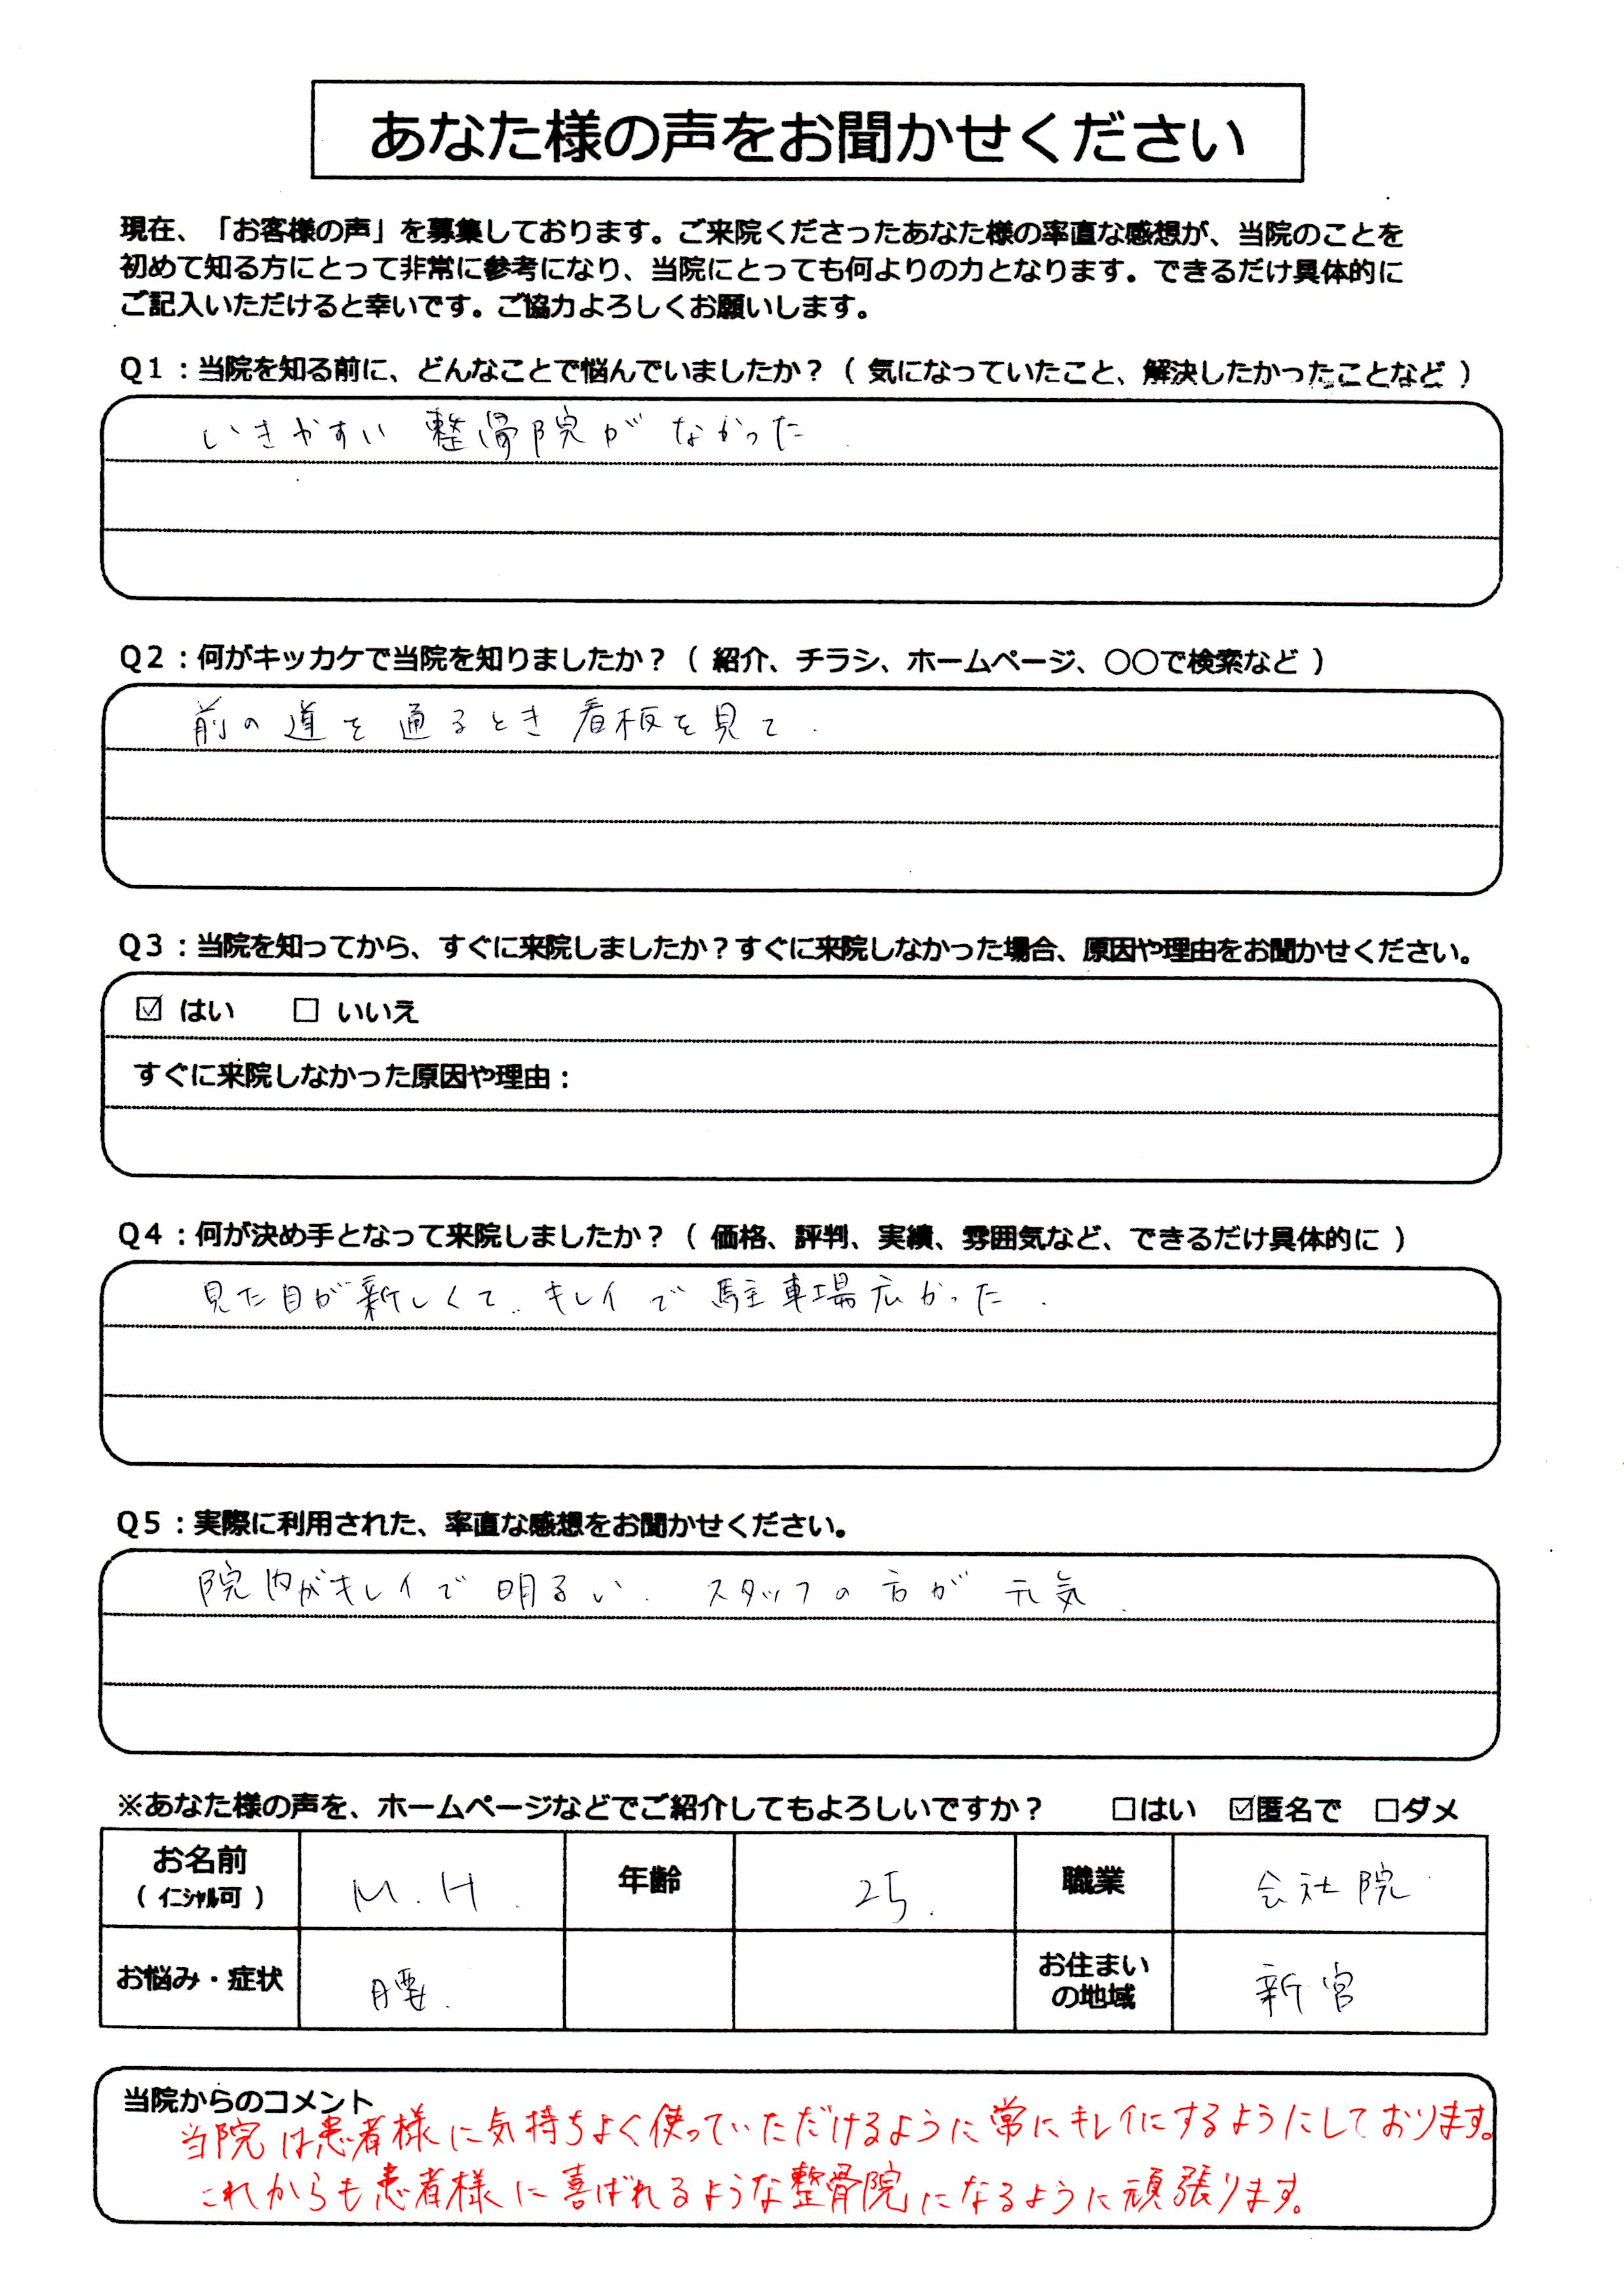 あなた様の声をお聞かせください
現在、「お客様の声」を募集しております。ご来院くださったあなた様の率直な感想が、当院のことを
初めて知る方にとって非常に参考になり、当院にとっても何よりの力となります。できるだけ具体的に
ご記入いただけると幸いです。ご協力よろしくお願いします。
Q1：当院を知る前に、どんなことで悩んでいましたか？（ 気になっていたこと、解決したかったことなど ）
いきやすい 整骨院が なかった
Q2：何がキッカケで当院を知りましたか？（ 紹介、チラシ、ホームページ、〇〇で検索など ）
前の道を通るとき看板を見て.
Q3：当院を知ってから、すぐに来院しましたか？すぐに来院しなかった場合、原因や理由をお聞かせください。
☑ はい　□ いいえ
すぐに来院しなかった原因や理由：
Q4：何が決め手となって来院しましたか？（ 価格、評判、実績、雰囲気など、できるだけ具体的に ）
見た目が新しくて.. キレイで 駐車場広かった.
Q5：実際に利用された、率直な感想をお聞かせください。
院内がキレイで 明るい. スタッフの方が 元気.
※あなた様の声を、ホームページなどでご紹介してもよろしいですか？　□はい　☑匿名で　□ダメ
お名前（イニシャル可） M.H. 年齢 25. 職業 会社院
お悩み・症状 腰. お住まいの地域 新宮
当院からのコメント
当院は患者様に気持ちよく使っていただけるように常にキレイにするようにしております。
これからも患者様に喜ばれるような整骨院になるように頑張ります。